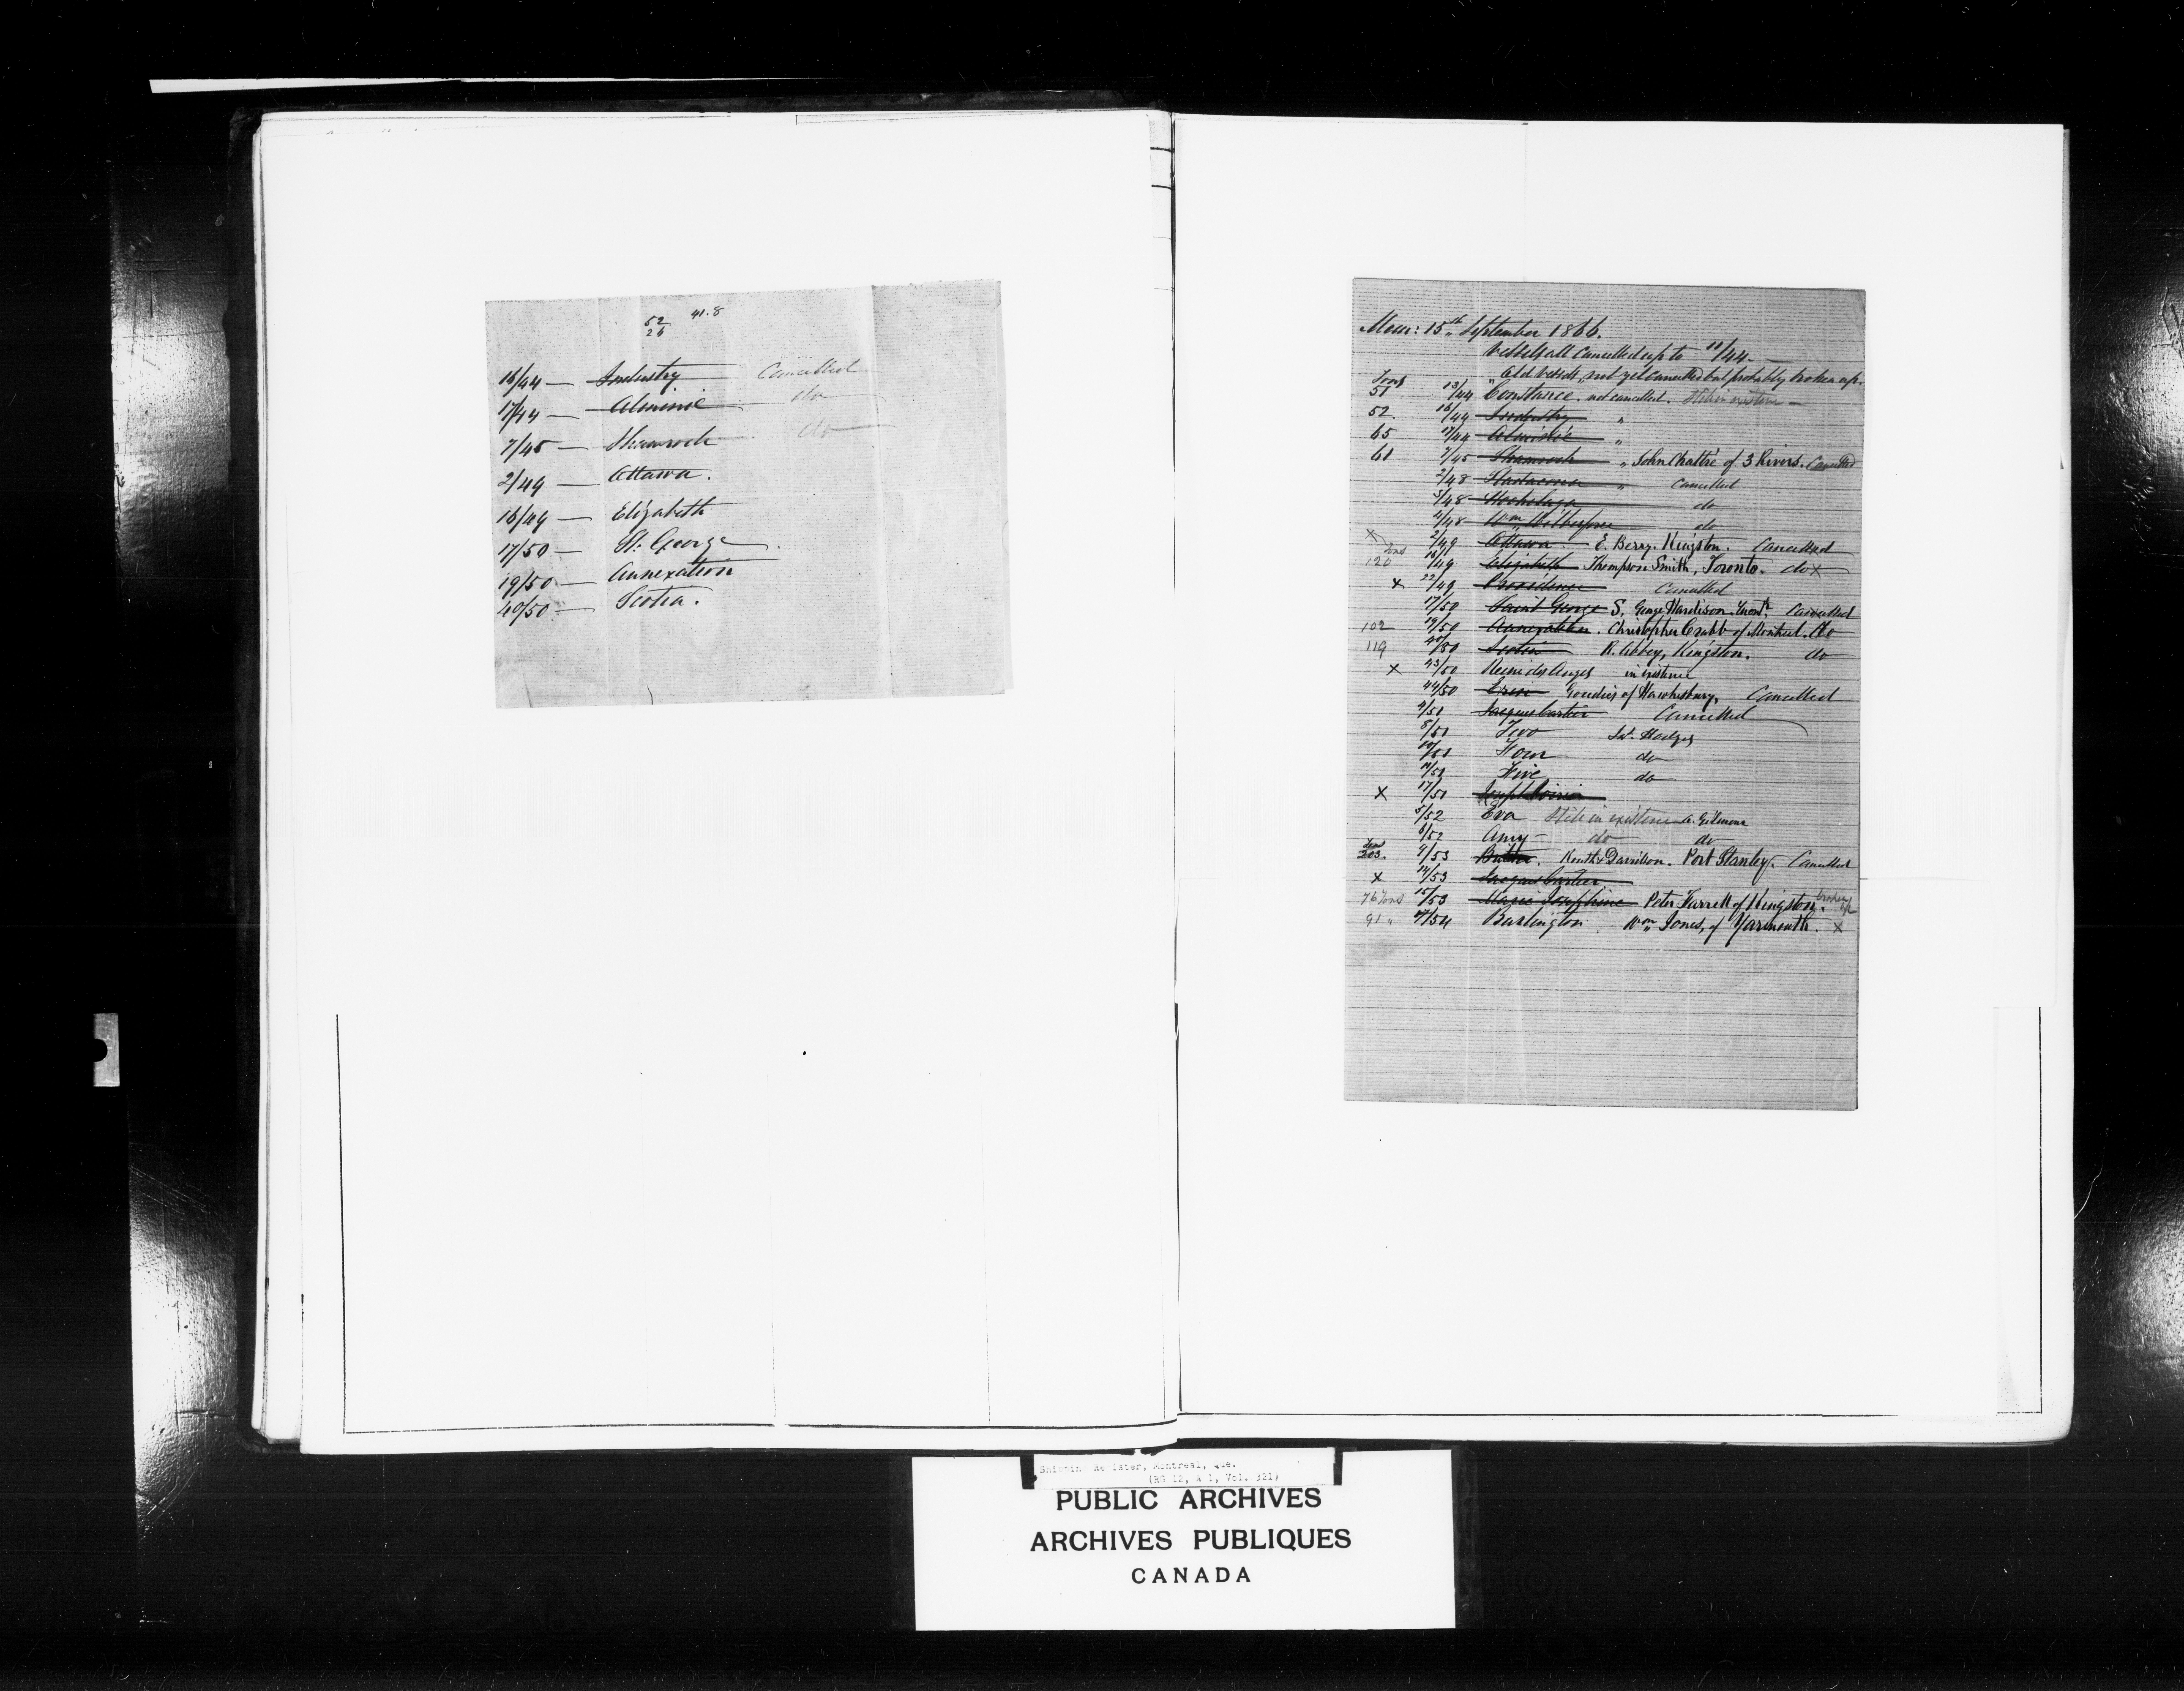 52 41.8
26
16/44 — Industry Cancelled
17/44 — Alminie do
7/45 — Shamrock do
2/49 — Ottawa.
16/49 — Elizabeth
17/50 — St. George
19/50 — Annexation
40/50 — Scotia.
Mem: 15th September 1866.
Vessels all Cancelled up to 11/44 —
Tons " Old Vessels, not yet cancelled but probably broken up.
51 13/44 Constance. not cancelled. Still in existence —
52 16/44 Industry "
65 17/44 "
61 7/45 Shamrock " John Chattré of 3 Rivers. Cancelled
2/48 Stadacona " Cancelled
3/48 Hochelaga do
4/48 Wm Wilberforce do
x 2/49 Ottawa E. Berry. Kingston. Cancelled
Tons
120 16/49 Elizabeth Thompson Smith, Toronto. do x
x 22/49 Providence Cancelled
17/50 Saint George S, George Hardison Cancelled
102 19/50 Annexation. Christopher Crabb of Montreal. do
119 40/50 Scotia R. Abbey, Kingston. do
x 43/50 Reine des Anges in existence
44/50 Erin Goudies of Hawkesbury, Cancelled
4/51 Jacques Cartier Cancelled
8/51 Two Jas. Hodges
10/51 Four do
11/51 Five do
x 17/51 Joseph
5/52 Eva Still in existence A. Gilmour
6/52 Amy — do do
Tons
203. 9/53 Routh & Davidson. Port Stanley. Cancelled
x 14/53 Jacques Cartier
76 Tons 15/53 Marie Josephine Peter Farrell of Kingston. broken up
91 " 27/54 Burlington Wm Jones, of Yarmouth. x
Shipping Register, Montreal, Que.
(RG 12, A 1, Vol. 321)
PUBLIC ARCHIVES
ARCHIVES PUBLIQUES
CANADA